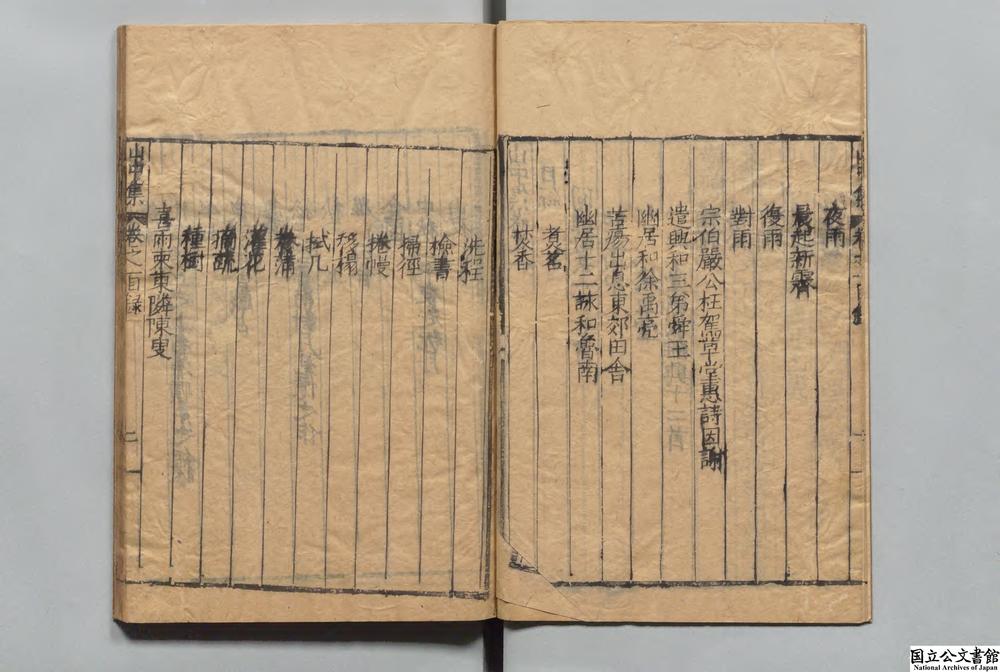 夜雨
晨起新霽
復雨
對雨
宗伯嚴公枉駕草堂惠詩因謝
遣興和三弟舜王
幽居和徐禹亮
苦瘍出息東郊田舍
幽居十二詠和魯南
煮茗
焚香
洗
檢書
掃徑
捲幔
移榻
拭几
灌花
摘蔬
種樹
喜雨柬東隣陳叟
卷之 目錄
二
国立公文書館
National Archives of Japan